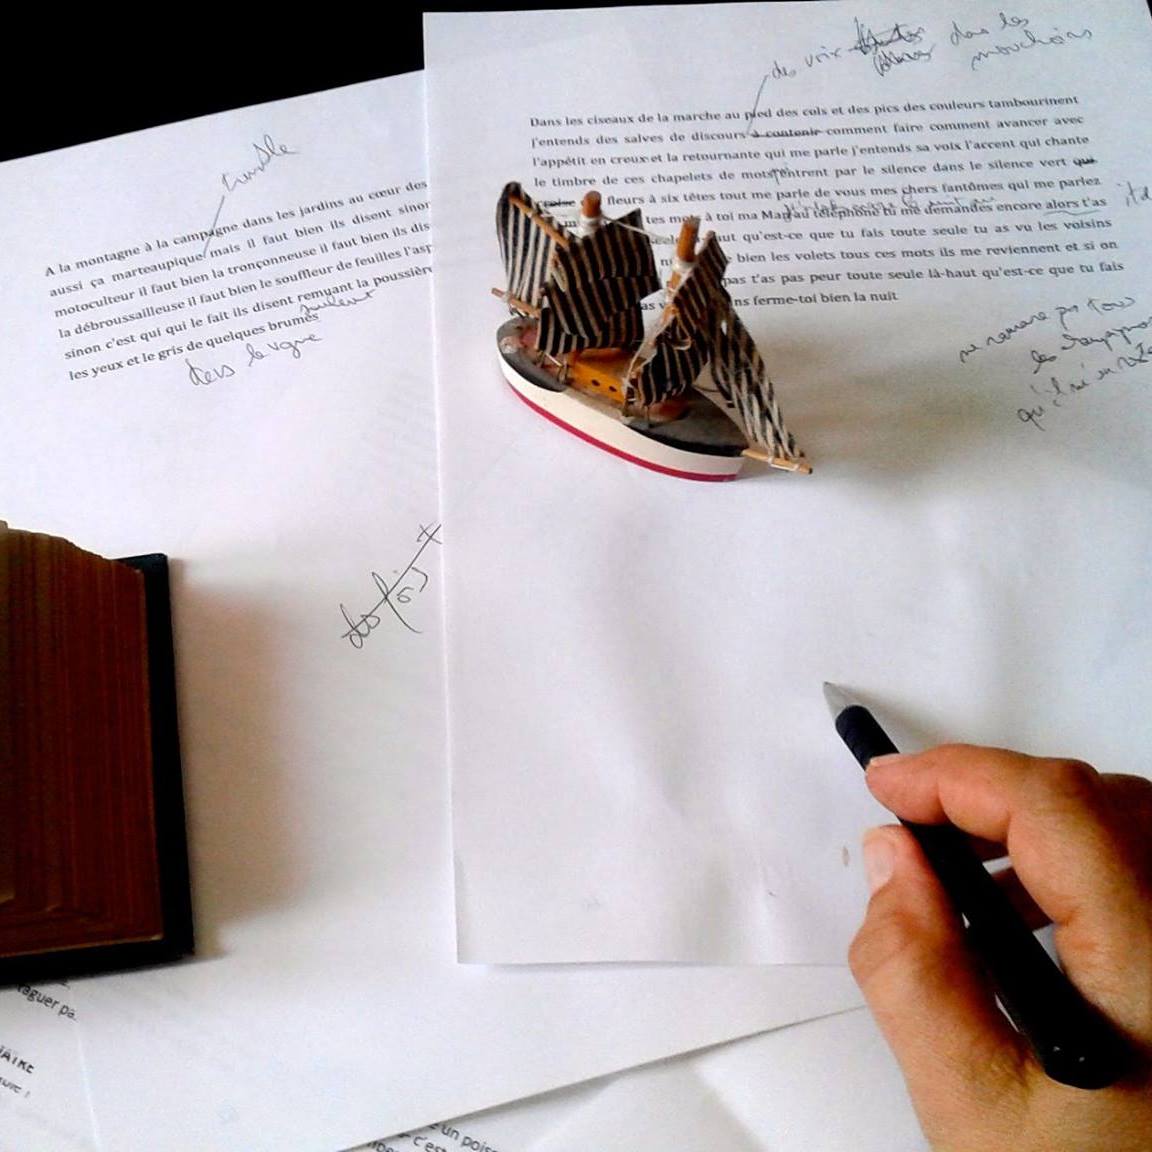 tremble
A la montagne à la campagne dans les jardins au cœur des
aussi ça marteaupique mais il faut bien ils disent sinon
motoculteur il faut bien la tronçonneuse il faut bien ils dis
la débroussailleuse il faut bien le souffleur de feuilles l'asp
sinon c'est qui qui le fait ils disent remuant la poussière
les yeux et le gris de quelques brumes
dans la vigne
des voix dans les
mouchoirs
Dans les ciseaux de la marche au pied des cols et des pics des couleurs tambourinent
j'entends des salves de discours à contenir comment faire comment avancer avec
l'appétit en creux et la retournante qui me parle j'entends sa voix l'accent qui chante
le timbre de ces chapelets de mots rentrent par le silence dans le silence vert que
croise fleurs à six têtes tout me parle de vous mes chers fantômes qui me parlez
tes mots à toi ma Mag au téléphone tu me demandes encore alors t'as
seule ut qu'est-ce que tu fais toute seule tu as vu les voisins
bien les volets tous ces mots ils me reviennent et si on
pas t'as pas peur toute seule là-haut qu'est-ce que tu fais
as v ns ferme-toi bien la nuit
ne ramène pas tous
les
qu'il
taguer pa
AIRE
un pois
c'est